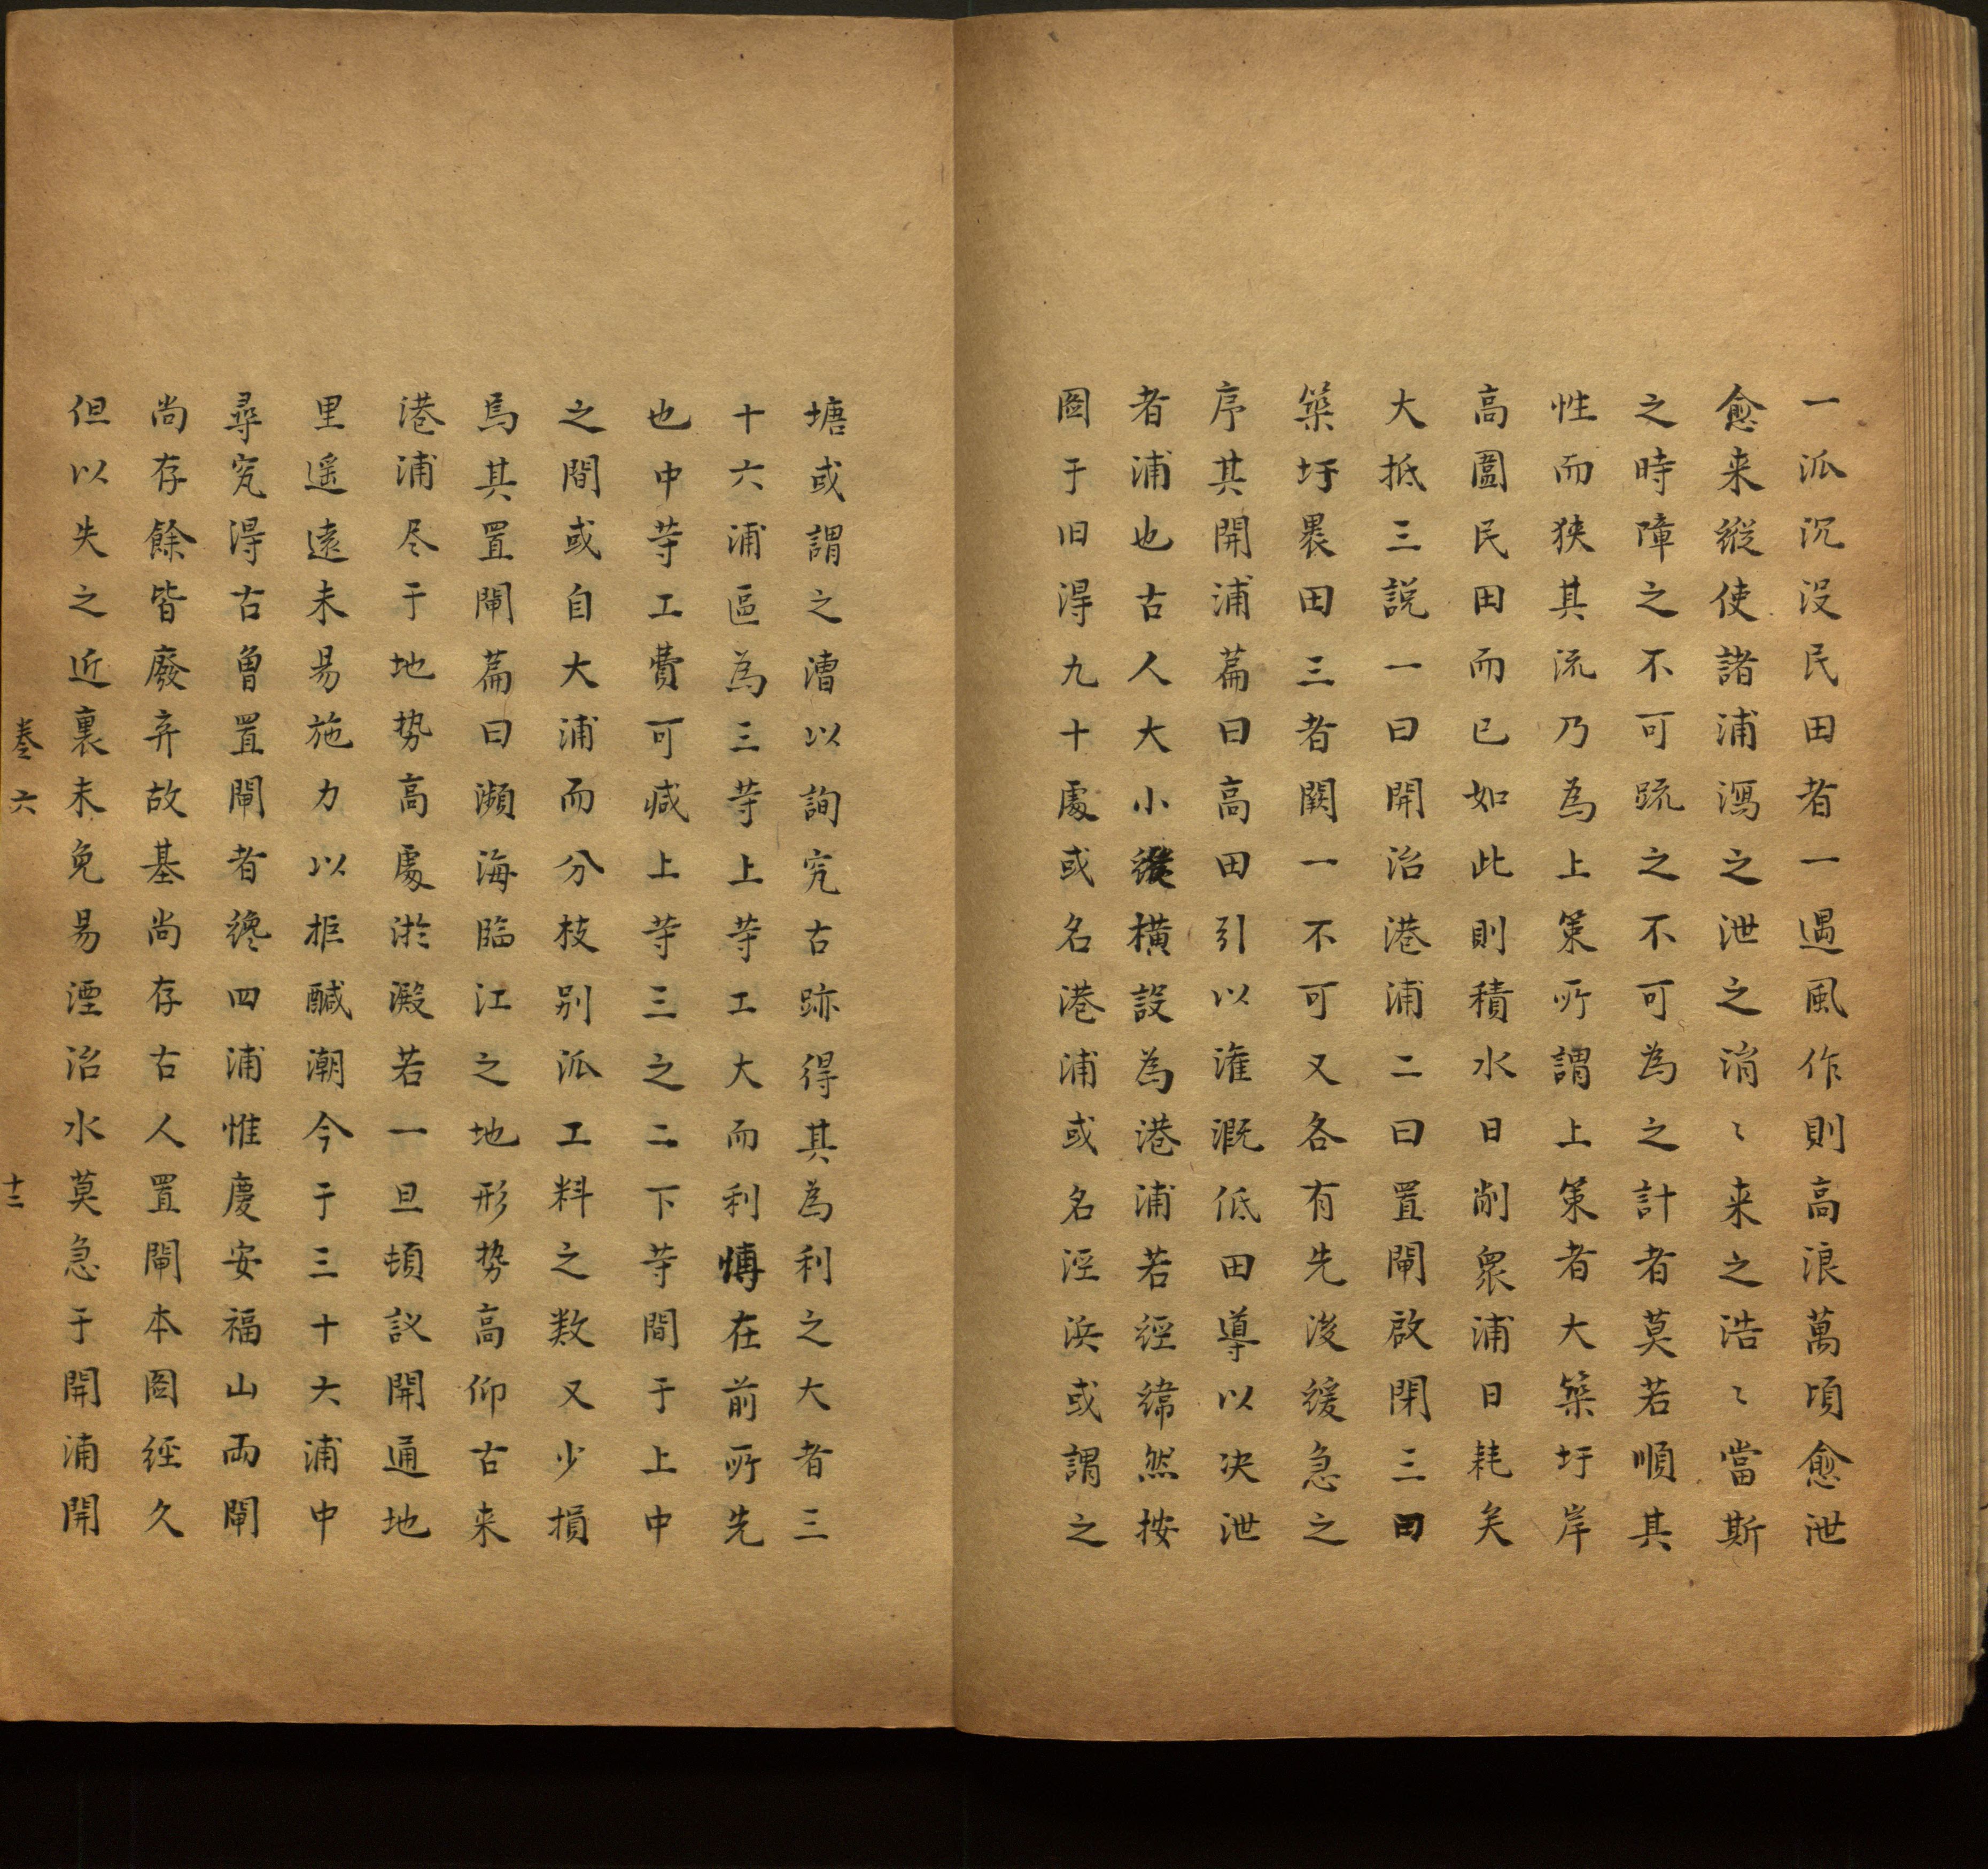 一派沉没民田者一遇風作則高浪萬頃愈泄
愈来縱使諸浦瀉之泄之涓〻来之浩〻當斯
之時障之不可䟽之不可為之計者莫若順其
性而狹其流乃為上策所謂上策者大築圩岸
高圍民田而已如此則積水日削衆浦日耗矣
大抵三説一曰開治港浦二曰置閘啟閉三曰
築圩褁田三者闕一不可又各有先後緩急之
序其開浦篇曰高田引以漼溉低田導以决泄
者浦也古人大小縱橫設為港浦若經緯然按
啚于旧得九十處或名港浦或名涇浜或謂之
塘或謂之漕以詢究古跡得其為利之大者三
十六浦區為三等上等工大而利慱在前所先
也中等工費可减上等三之二下等間于上中
之間或自大浦而分枝别派工料之数又少損
焉其置閘篇曰瀕海臨江之地形势高仰古来
港浦尽于地势高處淤澱若一旦頓議開通地
里遥遠未易施力以拒醎潮今于三十六浦中
尋究得古曾置閘者纔四浦惟慶安福山両閘
尚存餘皆廢弃故基尚存古人置閘本啚經久
但以失之近裏未免易湮治水莫急于開浦開
卷六
十二